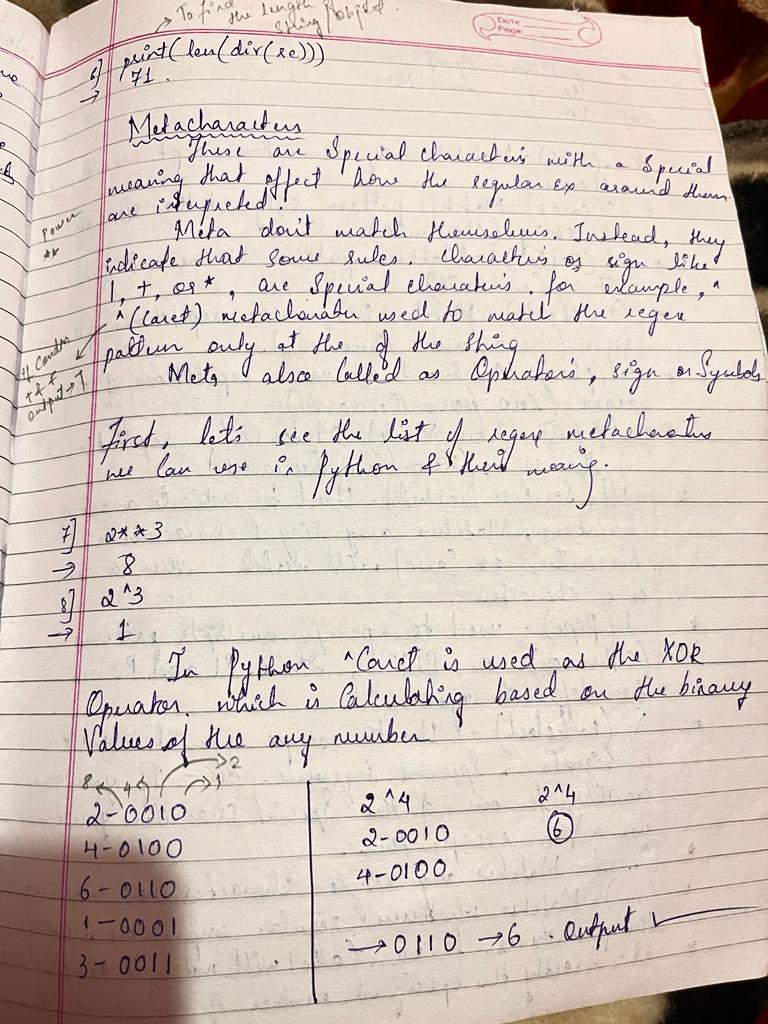 To find
the length
string/object
Date
Page
6] print(len(dir(re)))
→ 71.
Metacharacters
These are Special characters with a Special
meaning that affect how the regular Ex around them
are interpreted.
Power
**
Meta don't match themselves. Instead, they
indicate that some rules. Characters or sign like
|, +, or *, are Special characters. for example, ^
^(Caret) metacharater used to match the regex
pattern only at the of the string
output → 1
Meta also called as Operators, sign or Symbols
First, let's see the list of regex metacharactus
we can use in Python & their meaning.
7] 2**3
→ 8
8] 2^3
→ 1
In Python ^Caret is used as the XOR
Operator. which is Calculating based on the binary
Values of the any number
8 4 2 1
2-0010
4-0100
6-0110
1-0001
3-0011
2^4 2^4
2-0010 6
4-0100
→0110 →6 . Output